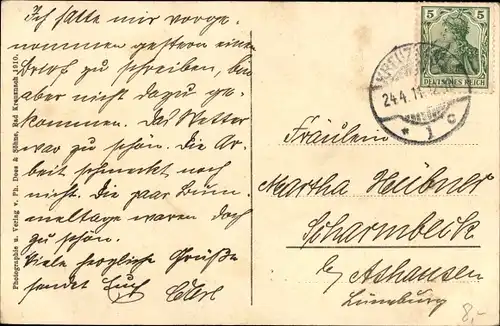 Ich hatte mir vorge-
nommen gestern einen
Brief zu schreiben, bin
aber nicht dazu ge-
kommen. Das Wetter
war zu schön. Die Ar-
beit schmeckt noch
nicht. Die paar Bum-
meltage waren doch
zu schön.
Viele herzliche Grüße
sendet Euch
Photographie u. Verlag v. Ph. Dees & Söhne, Bad Kreuznach 1910.
5 5
DEUTSCHES REICH
24.4.11
* 1 c
Fräulein
Martha Hübner
Scharmbeck
b/ Ashausen
Lüneburg
8,-